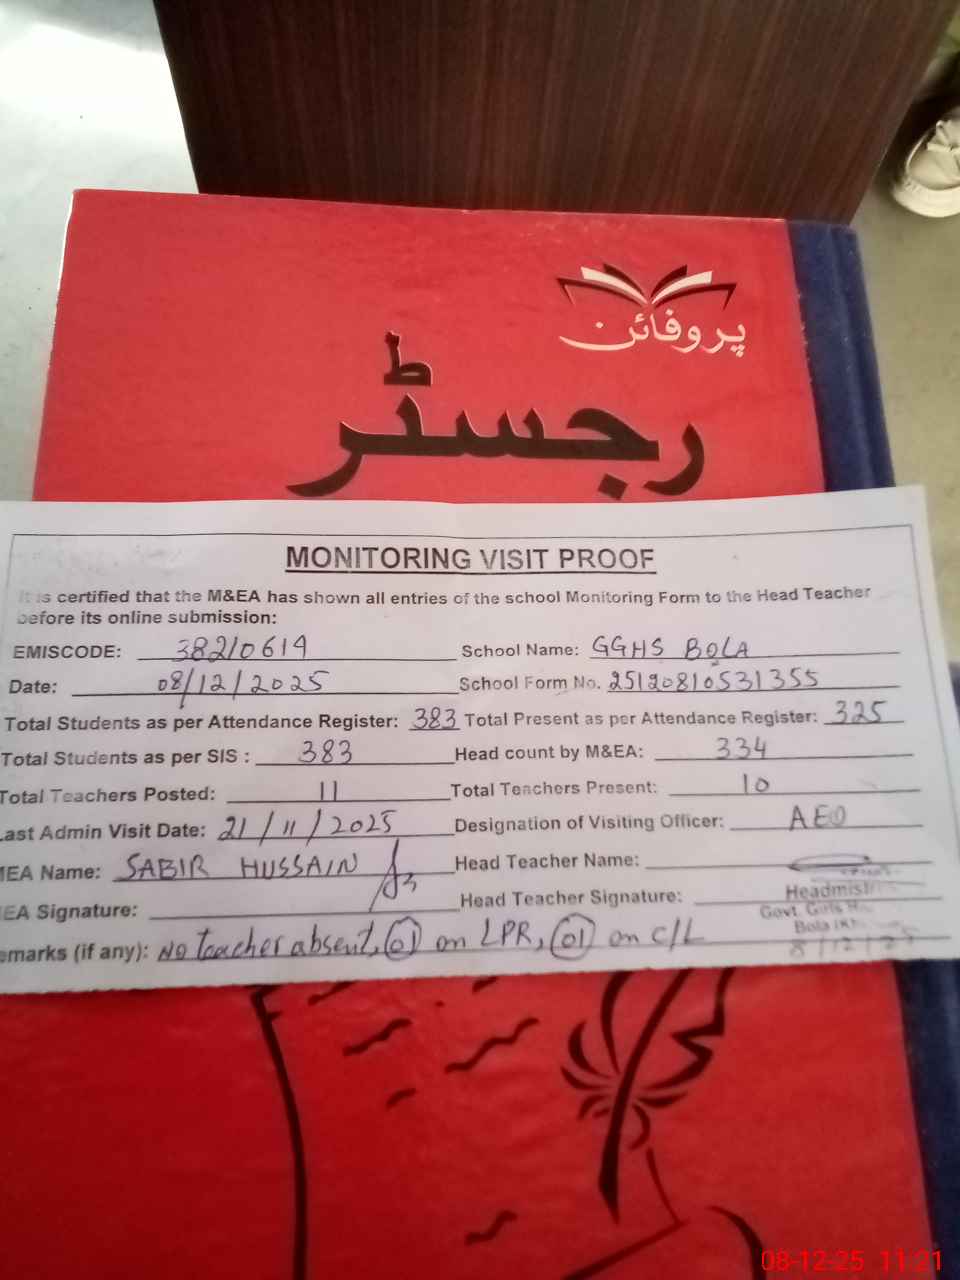 پروفائن
رجسٹر
MONITORING VISIT PROOF
It is certified that the M&EA has shown all entries of the school Monitoring Form to the Head Teacher
before its online submission:
EMISCODE: 38210619 School Name: GGHS BOLA
Date: 08/12/2025 School Form No. 25120810531355
Total Students as per Attendance Register: 383 Total Present as per Attendance Register: 325
Total Students as per SIS : 383 Head count by M&EA: 334
Total Teachers Posted: 11 Total Teachers Present: 10
Last Admin Visit Date: 21/11/2025 Designation of Visiting Officer: AEO
MEA Name: SABIR HUSSAIN Head Teacher Name:
MEA Signature: Head Teacher Signature: Headmist
Govt. Girls H
Bola
emarks (if any): No teacher absent, 01 on LPR, 01 on C/L 8/12/25
08-12-25 11:21